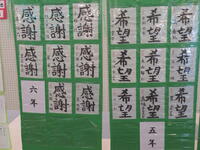 感謝 感謝 感謝
感謝 感謝 感謝
六年 感謝 感謝
希望 希望 希望
希望 希望 希望
希望 希望 希望
五年